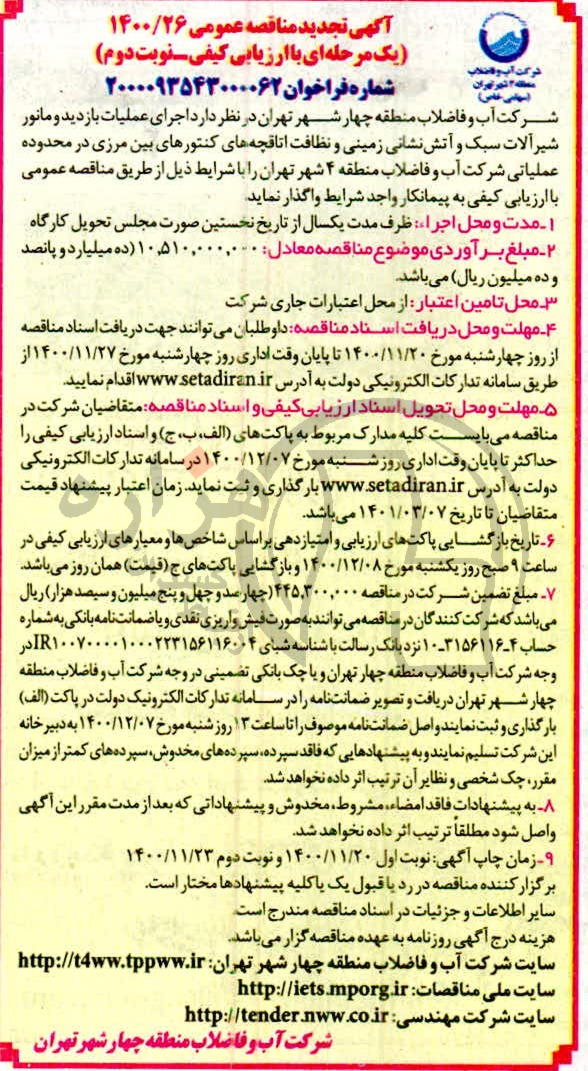 آگهی تجدید مناقصه عمومی ۱۴۰۰/۲۶
(یک مرحله‌ای با ارزیابی کیفی ـ نوبت دوم)
شماره فراخوان ۲۰۰۰۰۹۳۵۴۳۰۰۰۰۶۲
شرکت آب و فاضلاب
منطقه ۴ شهر تهران
(سهامی خاص)
شرکت آب و فاضلاب منطقه چهار شهر تهران در نظر دارد اجرای عملیات بازدید و مانور
شیرآلات سبک و آتش‌نشانی زمینی و نظافت اتاقچه‌های کنتورهای بین مرزی در محدوده
عملیاتی شرکت آب و فاضلاب منطقه ۴ شهر تهران را با شرایط ذیل از طریق مناقصه عمومی
با ارزیابی کیفی به پیمانکار واجد شرایط واگذار نماید.
۱ـ مدت و محل اجراء: ظرف مدت یکسال از تاریخ نخستین صورت مجلس تحویل کارگاه
۲ـ مبلغ برآوردی موضوع مناقصه معادل: ۱۰,۵۱۰,۰۰۰,۰۰۰ (ده میلیارد و پانصد
و ده میلیون ریال) می‌باشد.
۳ـ محل تامین اعتبار: از محل اعتبارات جاری شرکت
۴ـ مهلت و محل دریافت اسناد مناقصه: داوطلبان می‌توانند جهت دریافت اسناد مناقصه
از روز چهارشنبه مورخ ۱۴۰۰/۱۱/۲۰ تا پایان وقت اداری روز چهارشنبه مورخ ۱۴۰۰/۱۱/۲۷ از
طریق سامانه تدارکات الکترونیکی دولت به آدرس www.setadiran.ir اقدام نمایید.
۵ـ مهلت و محل تحویل اسناد ارزیابی کیفی و اسناد مناقصه: متقاضیان شرکت در
مناقصه می‌بایست کلیه مدارک مربوط به پاکت‌های (الف، ب، ج) و اسناد ارزیابی کیفی را
حداکثر تا پایان وقت اداری روز شنبه مورخ ۱۴۰۰/۱۲/۰۷ در سامانه تدارکات الکترونیکی
دولت به آدرس www.setadiran.ir بارگذاری و ثبت نماید. زمان اعتبار پیشنهاد قیمت
متقاضیان تا تاریخ ۱۴۰۱/۰۳/۰۷ می‌باشد.
۶ـ تاریخ بازگشایی پاکت‌های ارزیابی و امتیازدهی براساس شاخص‌ها و معیارهای ارزیابی کیفی در
ساعت ۹ صبح روز یکشنبه مورخ ۱۴۰۰/۱۲/۰۸ و بازگشایی پاکت‌های ج (قیمت) همان روز می‌باشد.
۷ـ مبلغ تضمین شرکت در مناقصه ۴۴۵,۳۰۰,۰۰۰ (چهارصد و چهل و پنج میلیون و سیصد هزار) ریال
می‌باشد که شرکت کنندگان در مناقصه می‌توانند به صورت فیش واریزی نقدی و یا ضمانت‌نامه بانکی به شماره
حساب ۴ـ۳۱۵۶۱۱۶ـ۱۰ نزد بانک رسالت با شناسه شبای IR۱۰۰۷۰۰۰۰۱۰۰۰۲۲۳۱۵۶۱۱۶۰۰۴ در
وجه شرکت آب و فاضلاب منطقه چهار تهران و یا چک بانکی تضمینی در وجه شرکت آب و فاضلاب منطقه
چهار شهر تهران دریافت و تصویر ضمانت‌نامه را در سامانه تدارکات الکترونیک دولت در پاکت (الف)
بارگذاری و ثبت نمایند و اصل ضمانت‌نامه موصوف را تا ساعت ۱۳ روز شنبه مورخ ۱۴۰۰/۱۲/۰۷ به دبیرخانه
این شرکت تسلیم نمایند و به پیشنهادهایی که فاقد سپرده، سپرده‌های مخدوش، سپرده‌های کمتر از میزان
مقرر، چک شخصی و نظایر آن ترتیب اثر داده نخواهد شد.
۸ـ به پیشنهادات فاقد امضاء، مشروط، مخدوش و پیشنهاداتی که بعد از مدت مقرر این آگهی
واصل شود مطلقاً ترتیب اثر داده نخواهد شد.
۹ـ زمان چاپ آگهی: نوبت اول ۱۴۰۰/۱۱/۲۰ و نوبت دوم ۱۴۰۰/۱۱/۲۳
برگزار کننده مناقصه در رد یا قبول یک یا کلیه پیشنهادها مختار است.
سایر اطلاعات و جزئیات در اسناد مناقصه مندرج است.
هزینه درج آگهی روزنامه به عهده مناقصه گزار می‌باشد.
سایت شرکت آب و فاضلاب منطقه چهار شهر تهران: http://t4ww.tppww.ir
سایت ملی مناقصات: http://iets.mporg.ir
سایت شرکت مهندسی: http://tender.nww.co.ir
شرکت آب و فاضلاب منطقه چهار شهر تهران